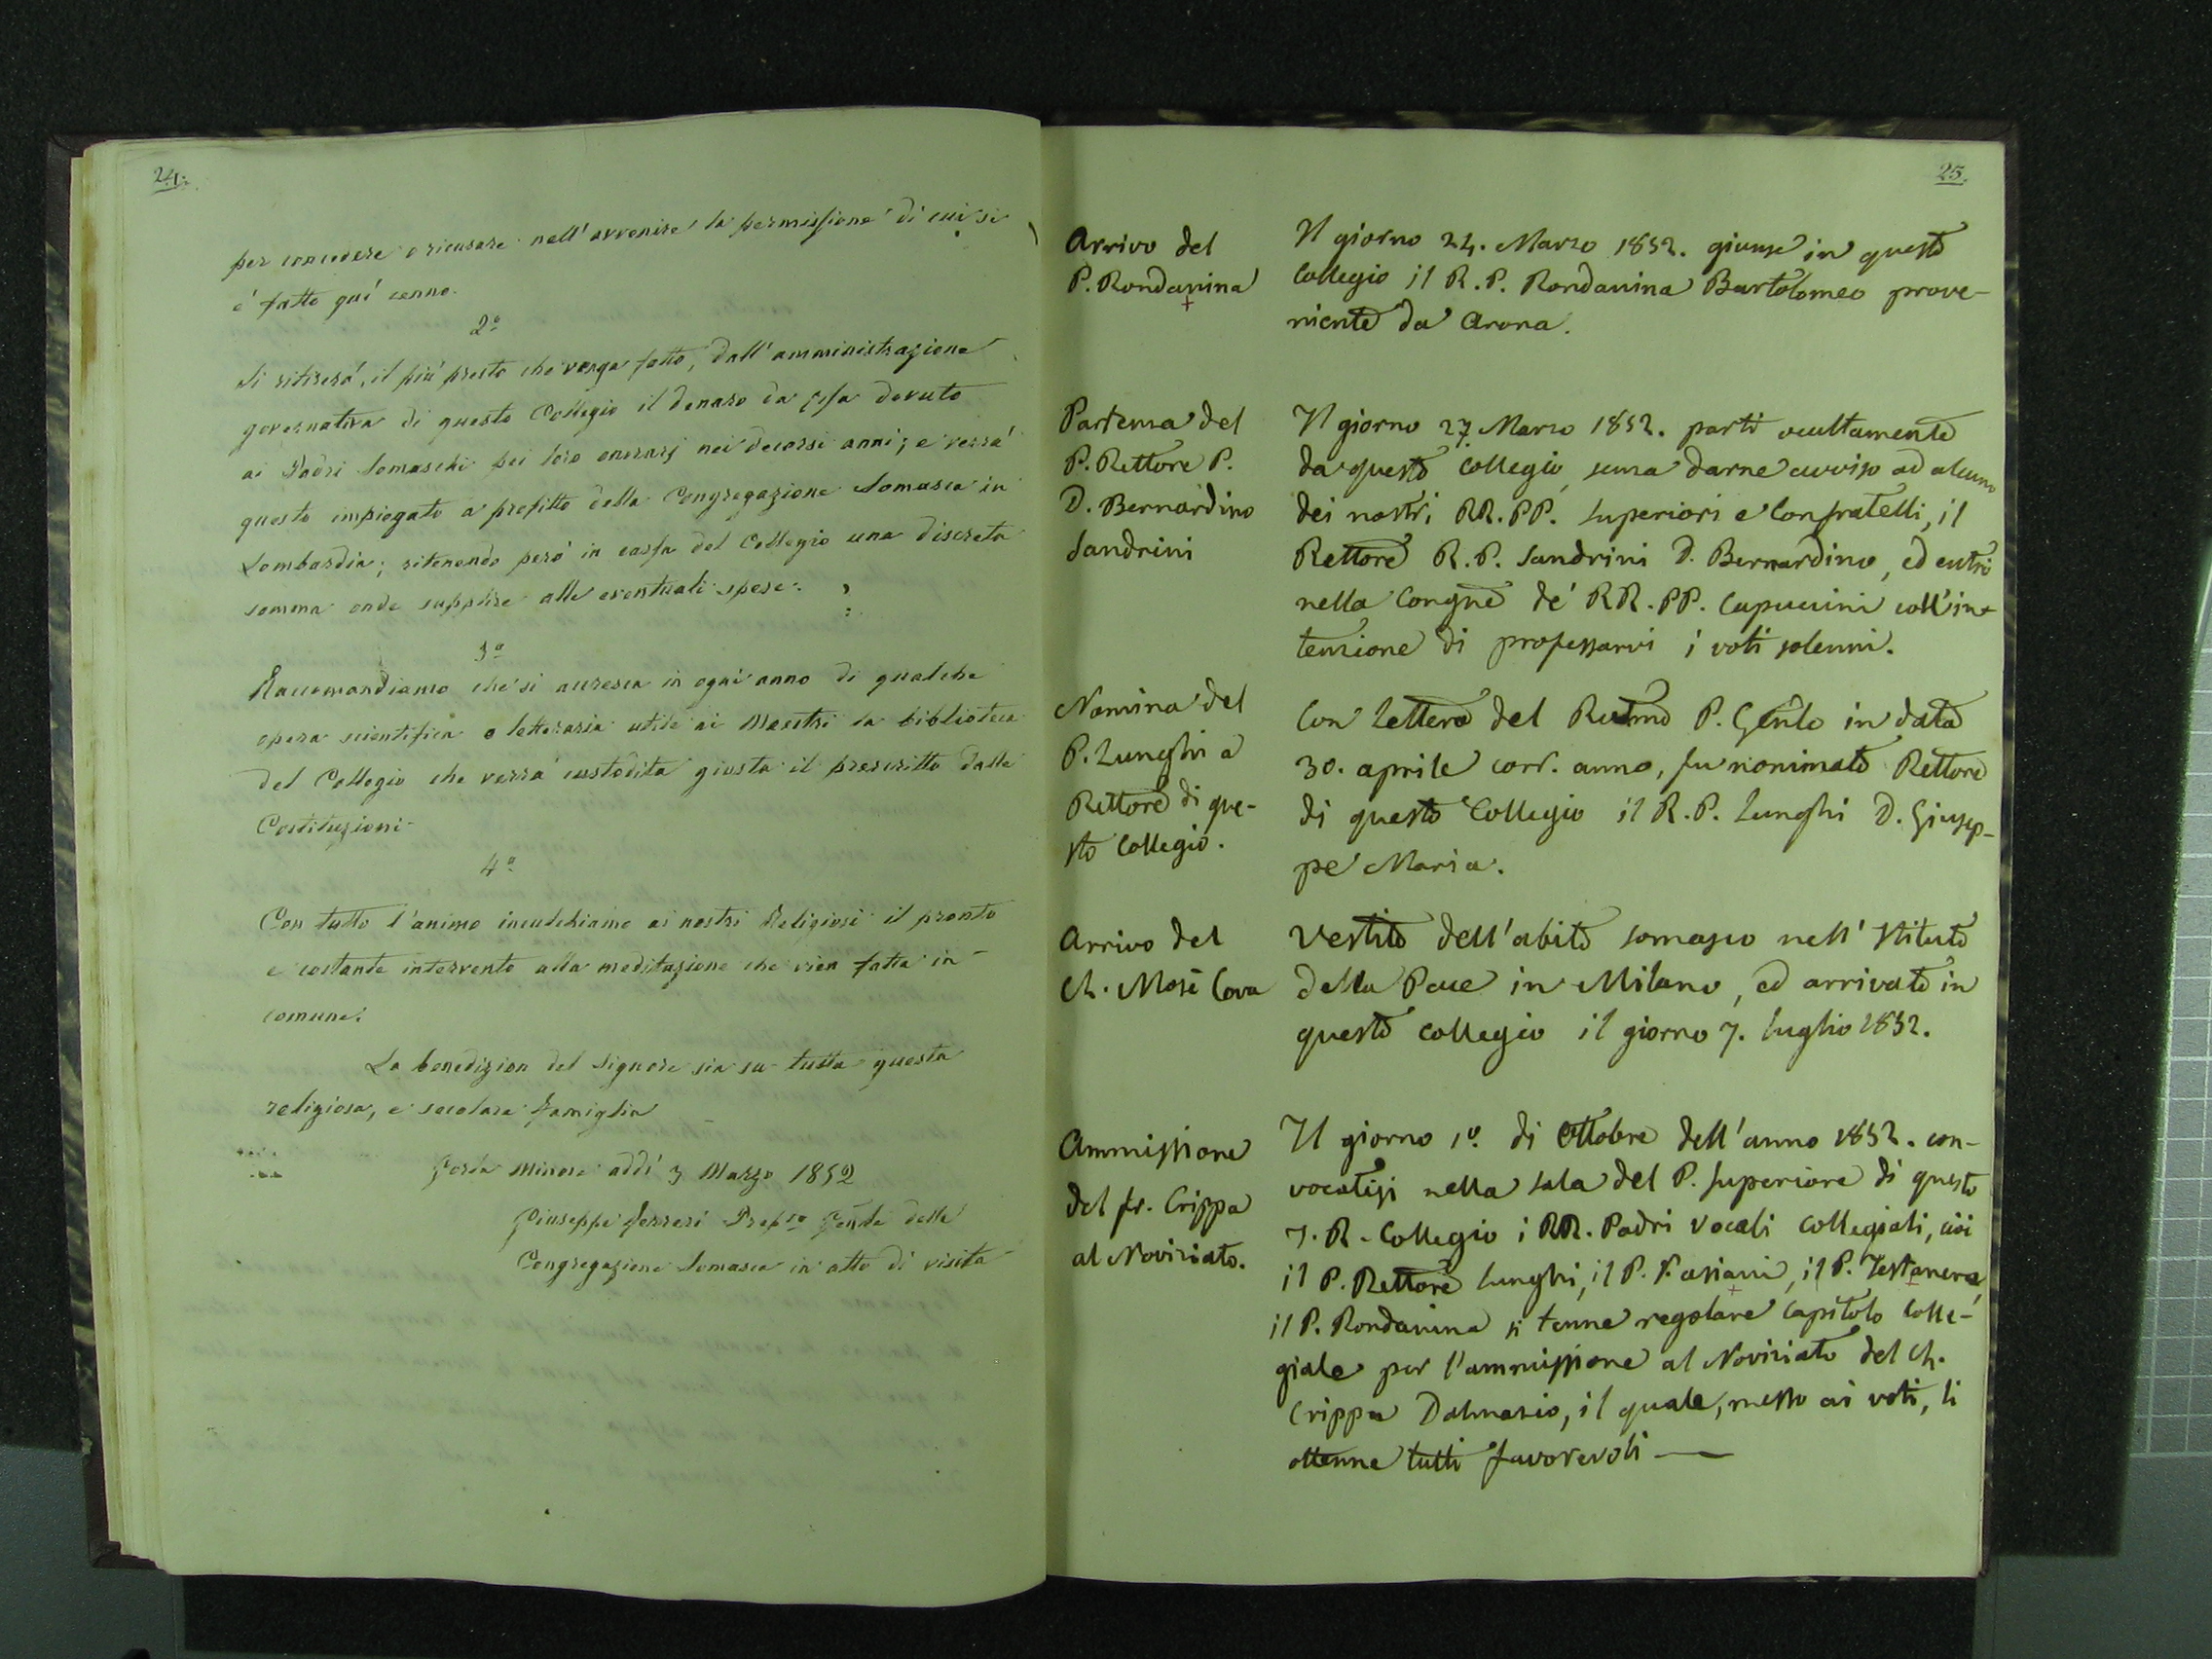 24.
per concedere o ricusare nell'avvenire la permissione di cui si
é fatto quí cenno.
2º
Si ritirerá, il piú presto che venga fatto, dall'amministrazione
governativa di questo Collegio il denaro da essa dovuto
ai Padri Somaschi pei loro onorarj nei decorsi anni; e verrá
questo impiegato a profitto della Congregazione Somasca in
Lombardia; ritenendo peró in cassa del Collegio una discreta
somma onde supplire alle eventuali spese.
3º
Raccomandiamo che si accresca in ogni anno di qualche
opera scientifica o letteraria utile ai Maestri la biblioteca
del Collegio che verrá custodita giusta il prescritto dalle
Costituzioni.
4º
Con tutto l'animo inculchiamo ai nostri Religiosi il pronto
e costante intervento alla meditazione che vien fatta in
comune.
La benedizion del Signore sia su tutta questa
religiosa, e secolare famiglia
Gorla Minore addí 3 Marzo 1852
Giuseppe Ferreri Prepto Genle della
Congregazione Somasca in atto di visita
25.
Arrivo del
P. Rondanina
Il giorno 24. Marzo 1852. giunse in questo
Collegio il R. P. Rondanina Bartolomeo prove-
niente da Arona.
Partenza del
P. Rettore P.
D. Bernardino
Sandrini
Il giorno 27. Marzo 1852. partì occultamente
da questo Collegio, senza darne avviso ad alcuno
dei nostri RR. PP. Superiori e Confratelli, il
Rettore R. P. Sandrini D. Bernardino, ed entrò
nella Congne de' RR. PP. Capuccini coll'in-
tenzione di professarvi i voti solenni.
Nomina del
P. Lunghi a
Rettore di que-
sto Collegio.
Con lettera del Revdmo P. Genle in data
30. aprile corr. anno, fu nonimato Rettore
di questo Collegio il R. P. Lunghi D. Giusep-
pe Maria.
Arrivo del
Ch. Mosè Cova
Vestito dell'abito somasco nell'Istituto
della Pace in Milano, ed arrivato in
questo collegio il giorno 7. luglio 1852.
Ammissione
del fr. Crippa
al Noviziato.
Il giorno 1º di Ottobre dell'anno 1852. con-
vocatisi nella sala del P. Superiore di questo
I. R. Collegio i RR. Padri Vocali Collegiali, cioè
il P. Rettore Lunghi, il P. Vasiani, il P. Testanera,
il P. Rondanina si tenne regolare Capitolo Colle-
giale per l'ammissione al Noviziato del Ch.
Crippa Dalmazio, il quale, messo ai voti, li
ottenne tutti favorevoli —